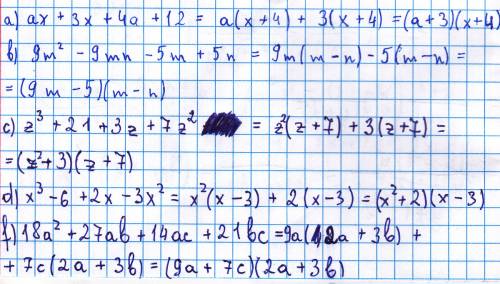 a) ax + 3x + 4a + 12 = a(x+4) + 3(x+4) = (a+3)(x+4)
b) 9m² - 9mn - 5m + 5n = 9m(m-n) - 5(m-n) =
= (9m - 5)(m-n)
c) z³ + 21 + 3z + 7z² = z²(z+7) + 3(z+7) =
= (z²+3)(z+7)
d) x³ - 6 + 2x - 3x² = x²(x-3) + 2(x-3) = (x²+2)(x-3)
f) 18a² + 27ab + 14ac + 21bc = 9a(2a + 3b) +
+ 7c(2a + 3b) = (9a + 7c)(2a + 3b)